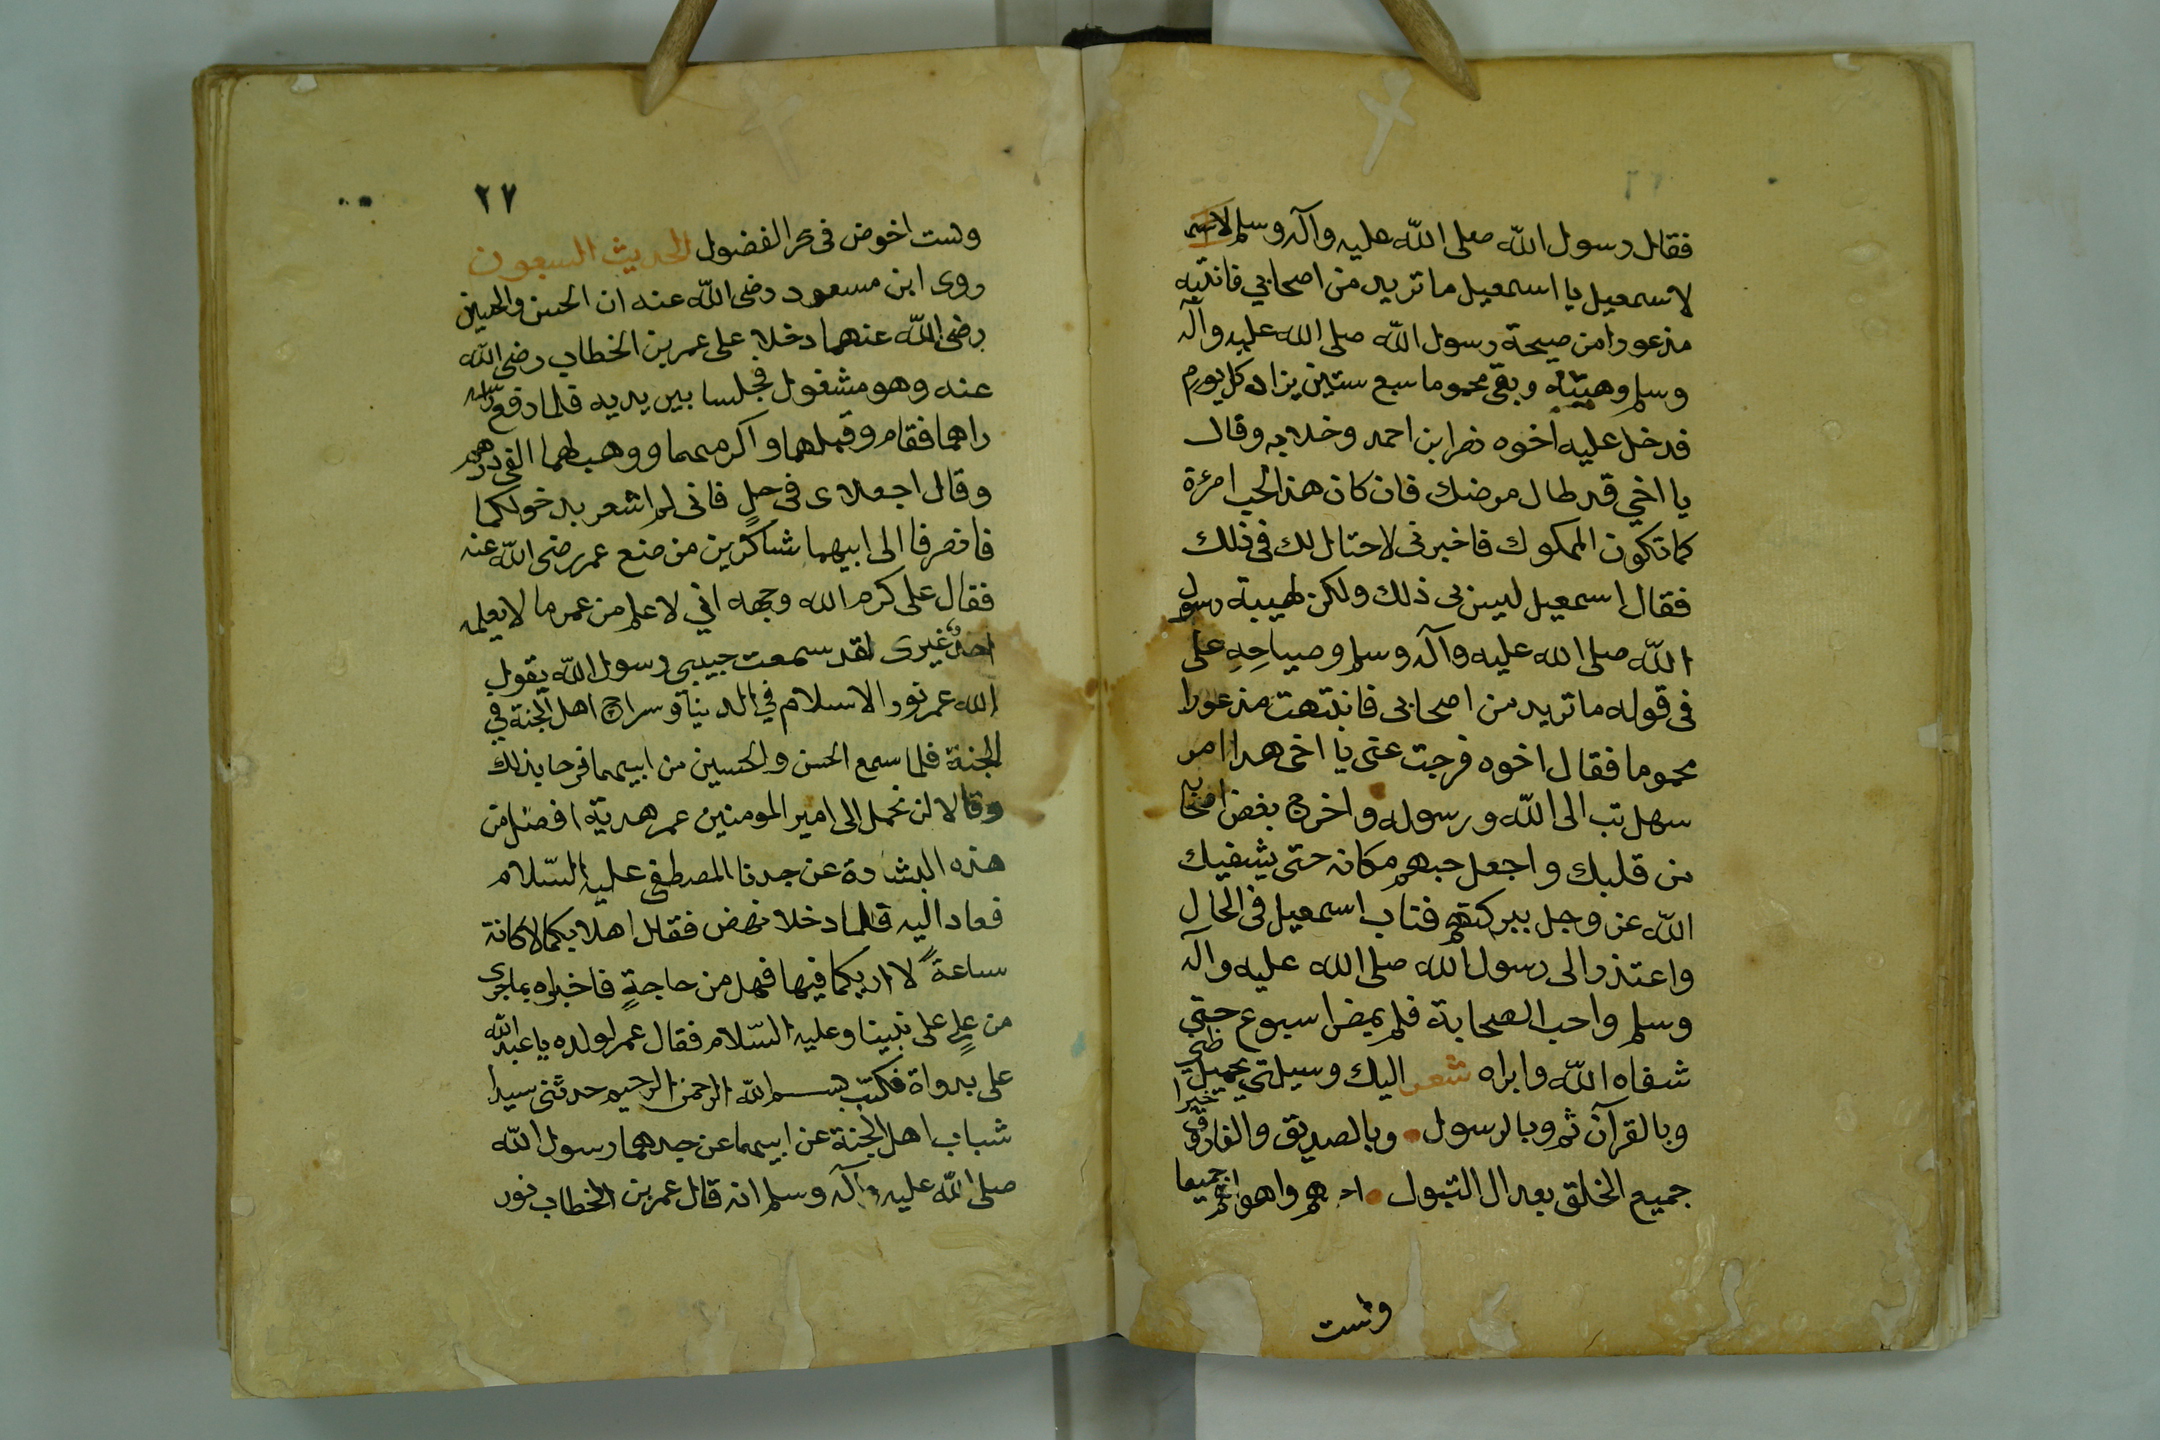 فقال رسول الله صلى الله عليه وآله وسلم
لاسمعيل يا اسمعيل ما تريد من اصحابي فانتبه
مذعورا من صيحة رسول الله صلى الله عليه وآله
وسلم وهيبته وبقى محموما سبع سنين يزاد كل يوم
فدخل عليه اخوه نصر ابن احمد وخلا به وقال
يا اخي قد طال مرضك فان كان هذا لحب امرءة
كما تكون الملوك فاخبرنى لاحتال لك فى ذلك
فقال اسمعيل ليس بى ذلك ولكن لهيبة رسول
الله صلى الله عليه وآله وسلم وصياحه على
فى قوله ما تريد من اصحابى فانتهت مذعورا
محموما فقال اخوه فرجت عنى يا اخى هذا امر
سهل تب الى الله ورسوله واخرج بغض اصحابه
من قلبك واجعل حبهم مكانه حتى يشفيك
الله عز وجل ببركتهم فتاب اسمعيل فى الحال
واعتذر الى رسول الله صلى الله عليه وآله
وسلم واحب الصحابة فلم يمض اسبوع حتى
شفاه الله وابراه شعر اليك وسيلتي بجميل ظني
وبالقرآن ثم وبالرسول وبالصديق والفاروق
جميع الخلق بعد ال البتول هم واهواهم جميعا
ولست
٢٧
ولست اخوض فى بحر الفضول الحديث السبعون
روى ابن مسعود رضى الله عنه ان الحسن والحسين
رضى الله عنهما دخلا على عمر بن الخطاب رضى الله
عنه وهو مشغول فجلسا بين يديه فلما رفع راسه
راهما فقام وقبلهما واكرمهما ووهب لهما الفى درهم
وقال اجعلاى فى حل فانى لم اشعر بدخولكما
فانصرفا الى ابيهما شاكرين من صنع عمر رضى الله عنه
فقال على كرم الله وجهه اني لاعلم من عمر ما لا يعلمه
احد غيرى لقد سمعت حبيبى رسول الله يقول
الله عمر نور الاسلام في الدنيا وسراج اهل الجنة في
الجنة فلما سمع الحسن والحسين من ابيهما فرحا بذلك
وقالا لن نحمل الى امير المومنين عمر هدية افضل من
هذه البشارة عن جدنا المصطفى عليه السلام
فعادا اليه فلما دخلا نهض فقال اهلا بكما لا كانت
ساعة لا اريكما فيها فهل من حاجة فاخبراه بما جرى
من على على نبينا وعليه السلام فقال عمر لولده يا عبد الله
على بدواة فكتب بسم الله الرحمن الرحيم حدثنى سيدا
شباب اهل الجنة عن ابيهما عن جدهما رسول الله
صلى الله عليه وآله وسلم انه قال عمر بن الخطاب نور